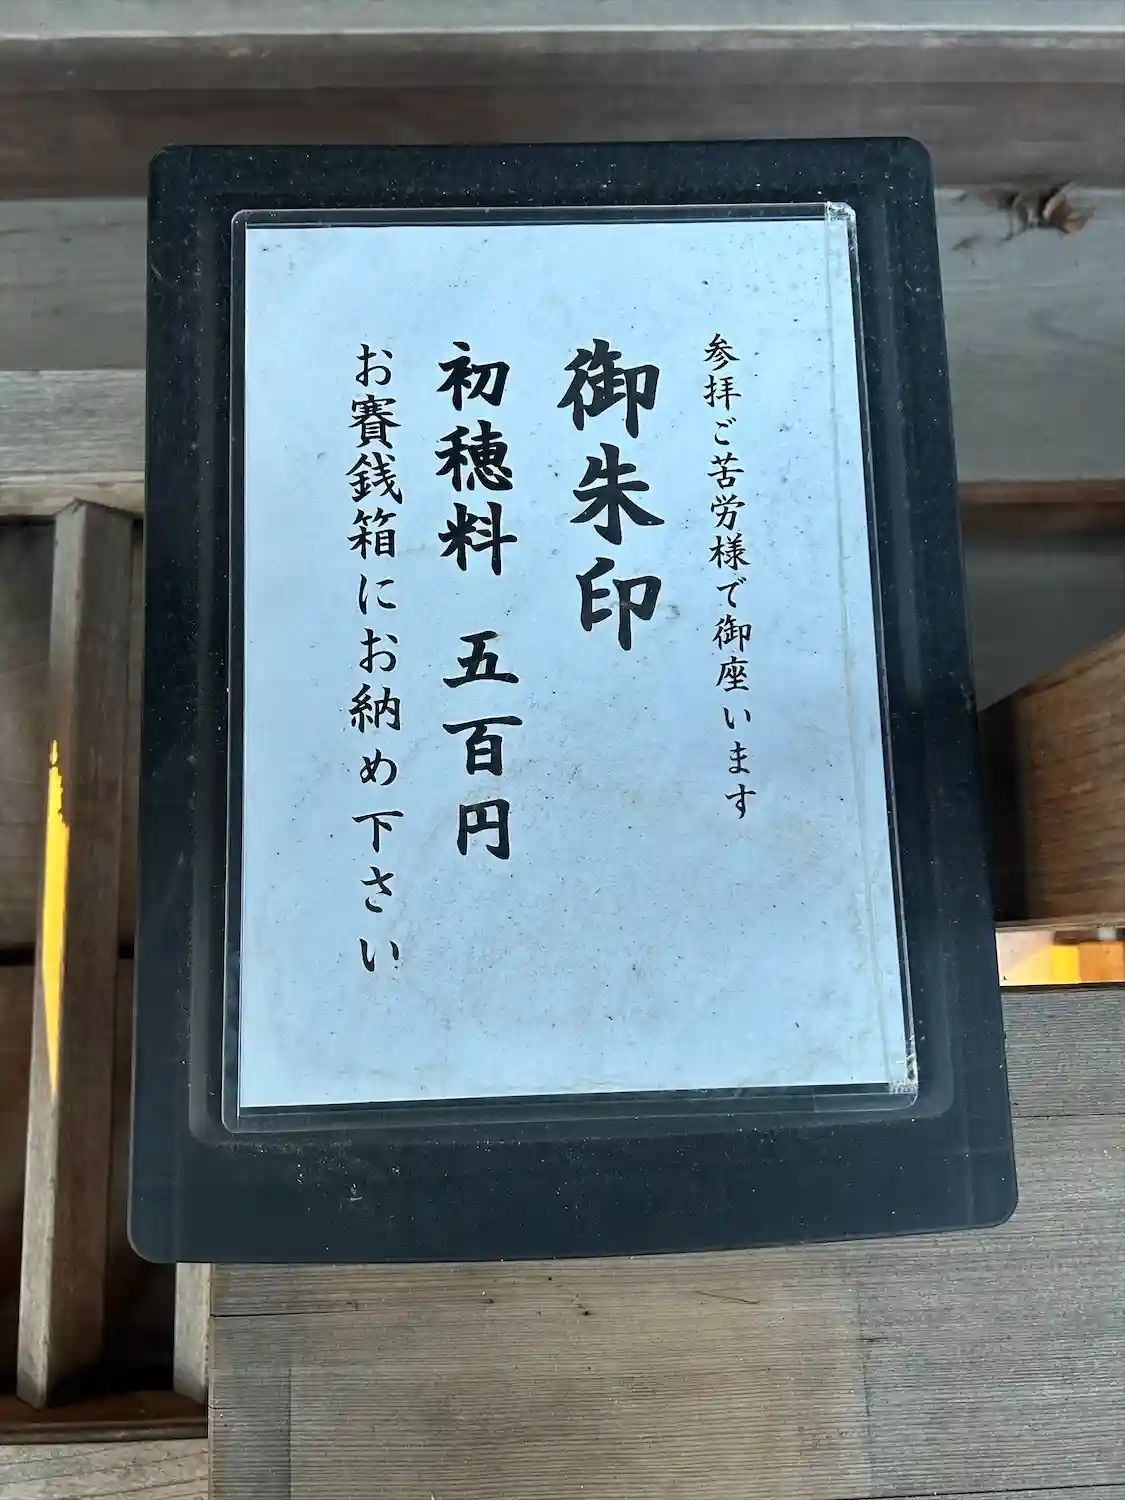 参拝ご苦労様で御座います
御朱印
初穂料 五百円
お賽銭箱にお納め下さい